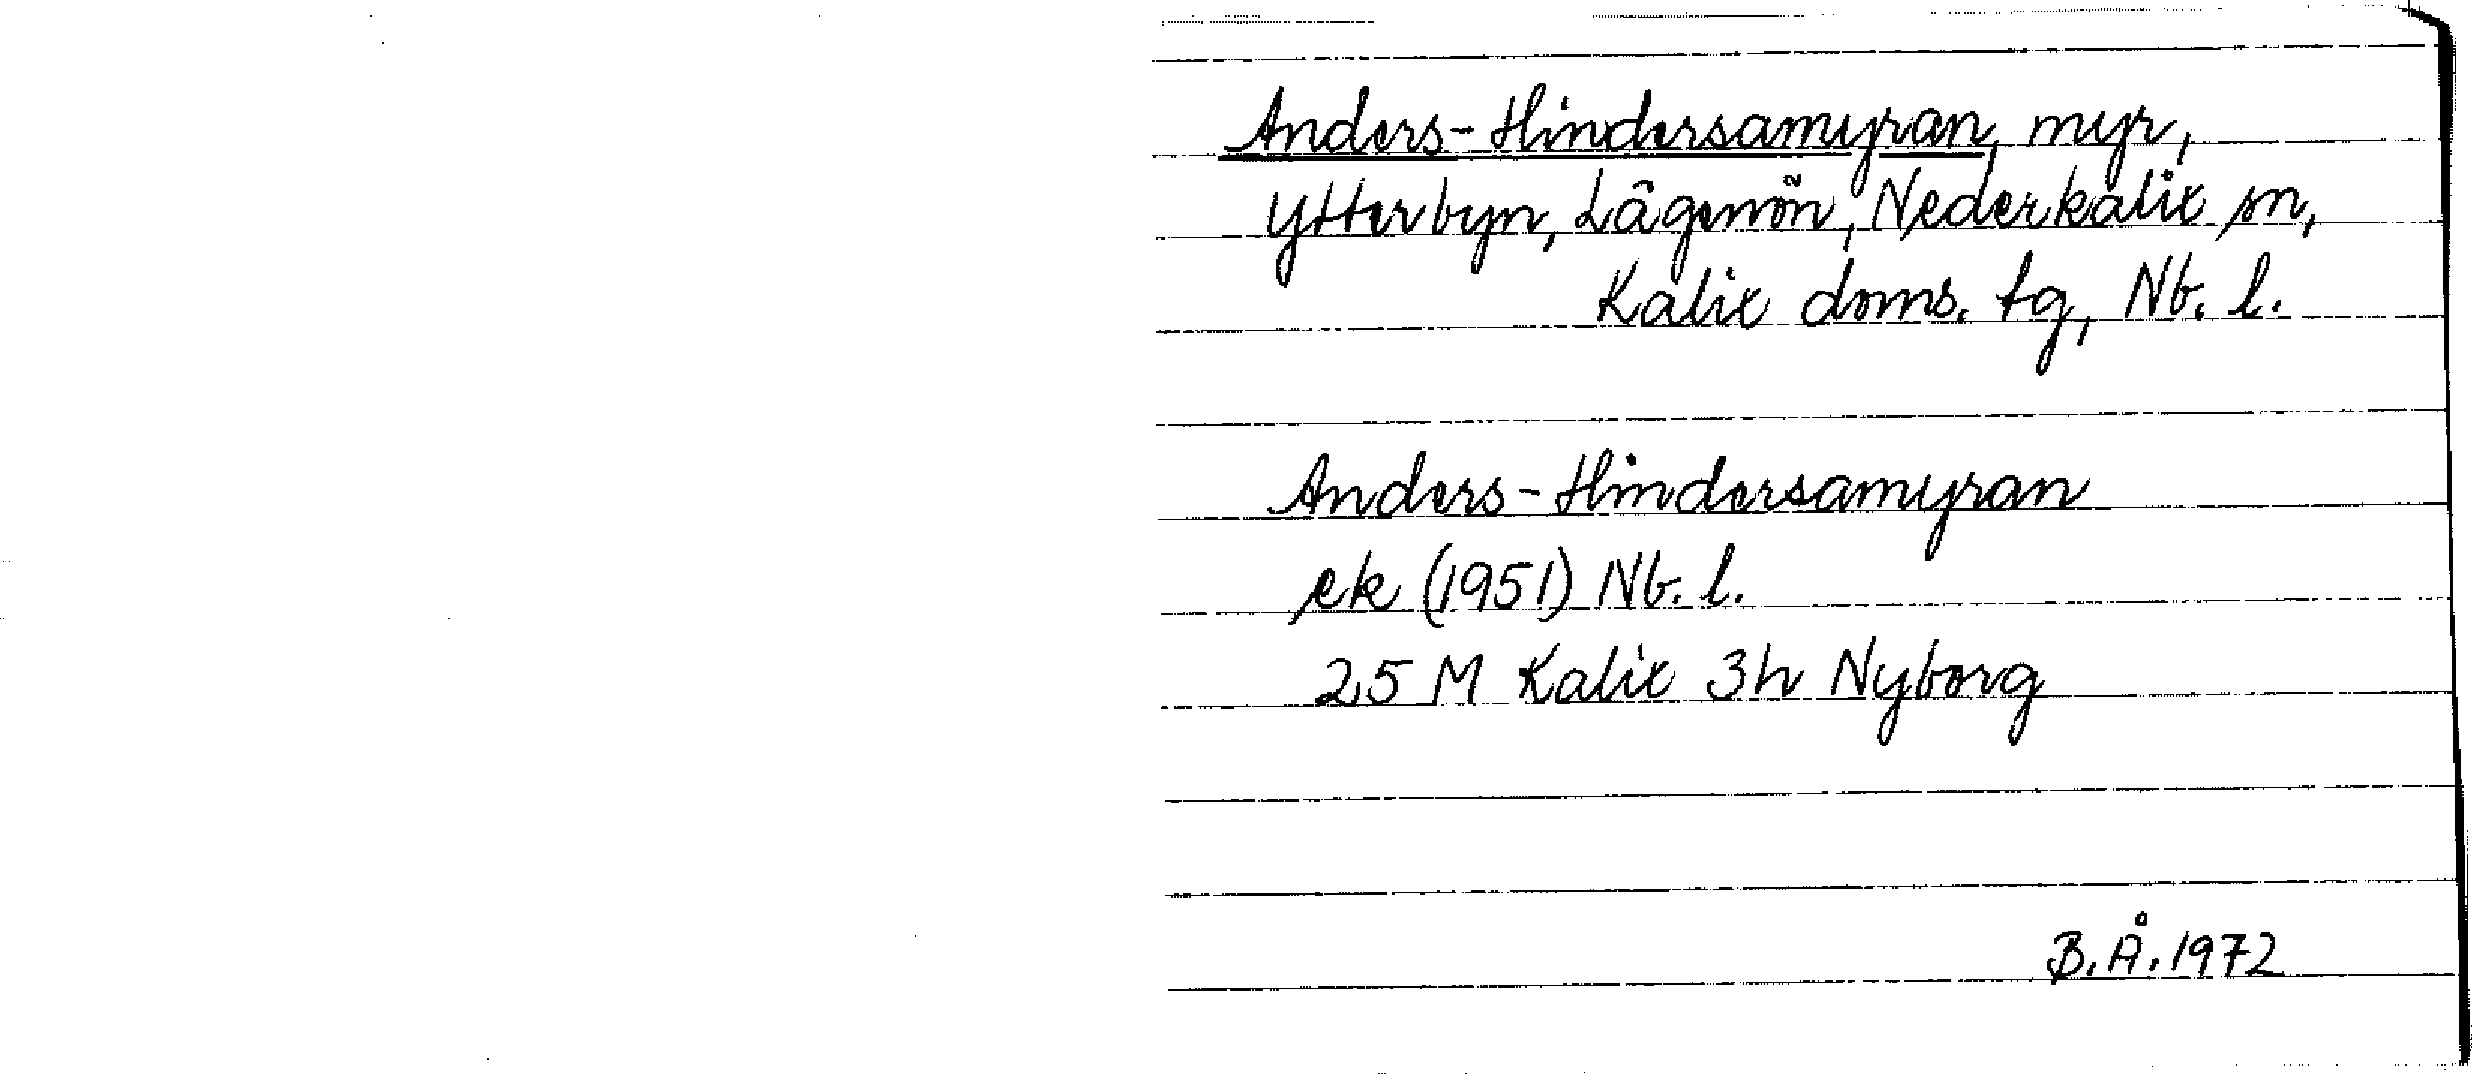 Anders-Hindersamyran, myr,
Ytterbyn, Lågmön, Nederkalix sn,
Kalix doms. tg, Nb. l.
Anders-Hindersamyran
ek (1951) Nb. l.
25 M Kalix 3h Nyborg
B.Å. 1972